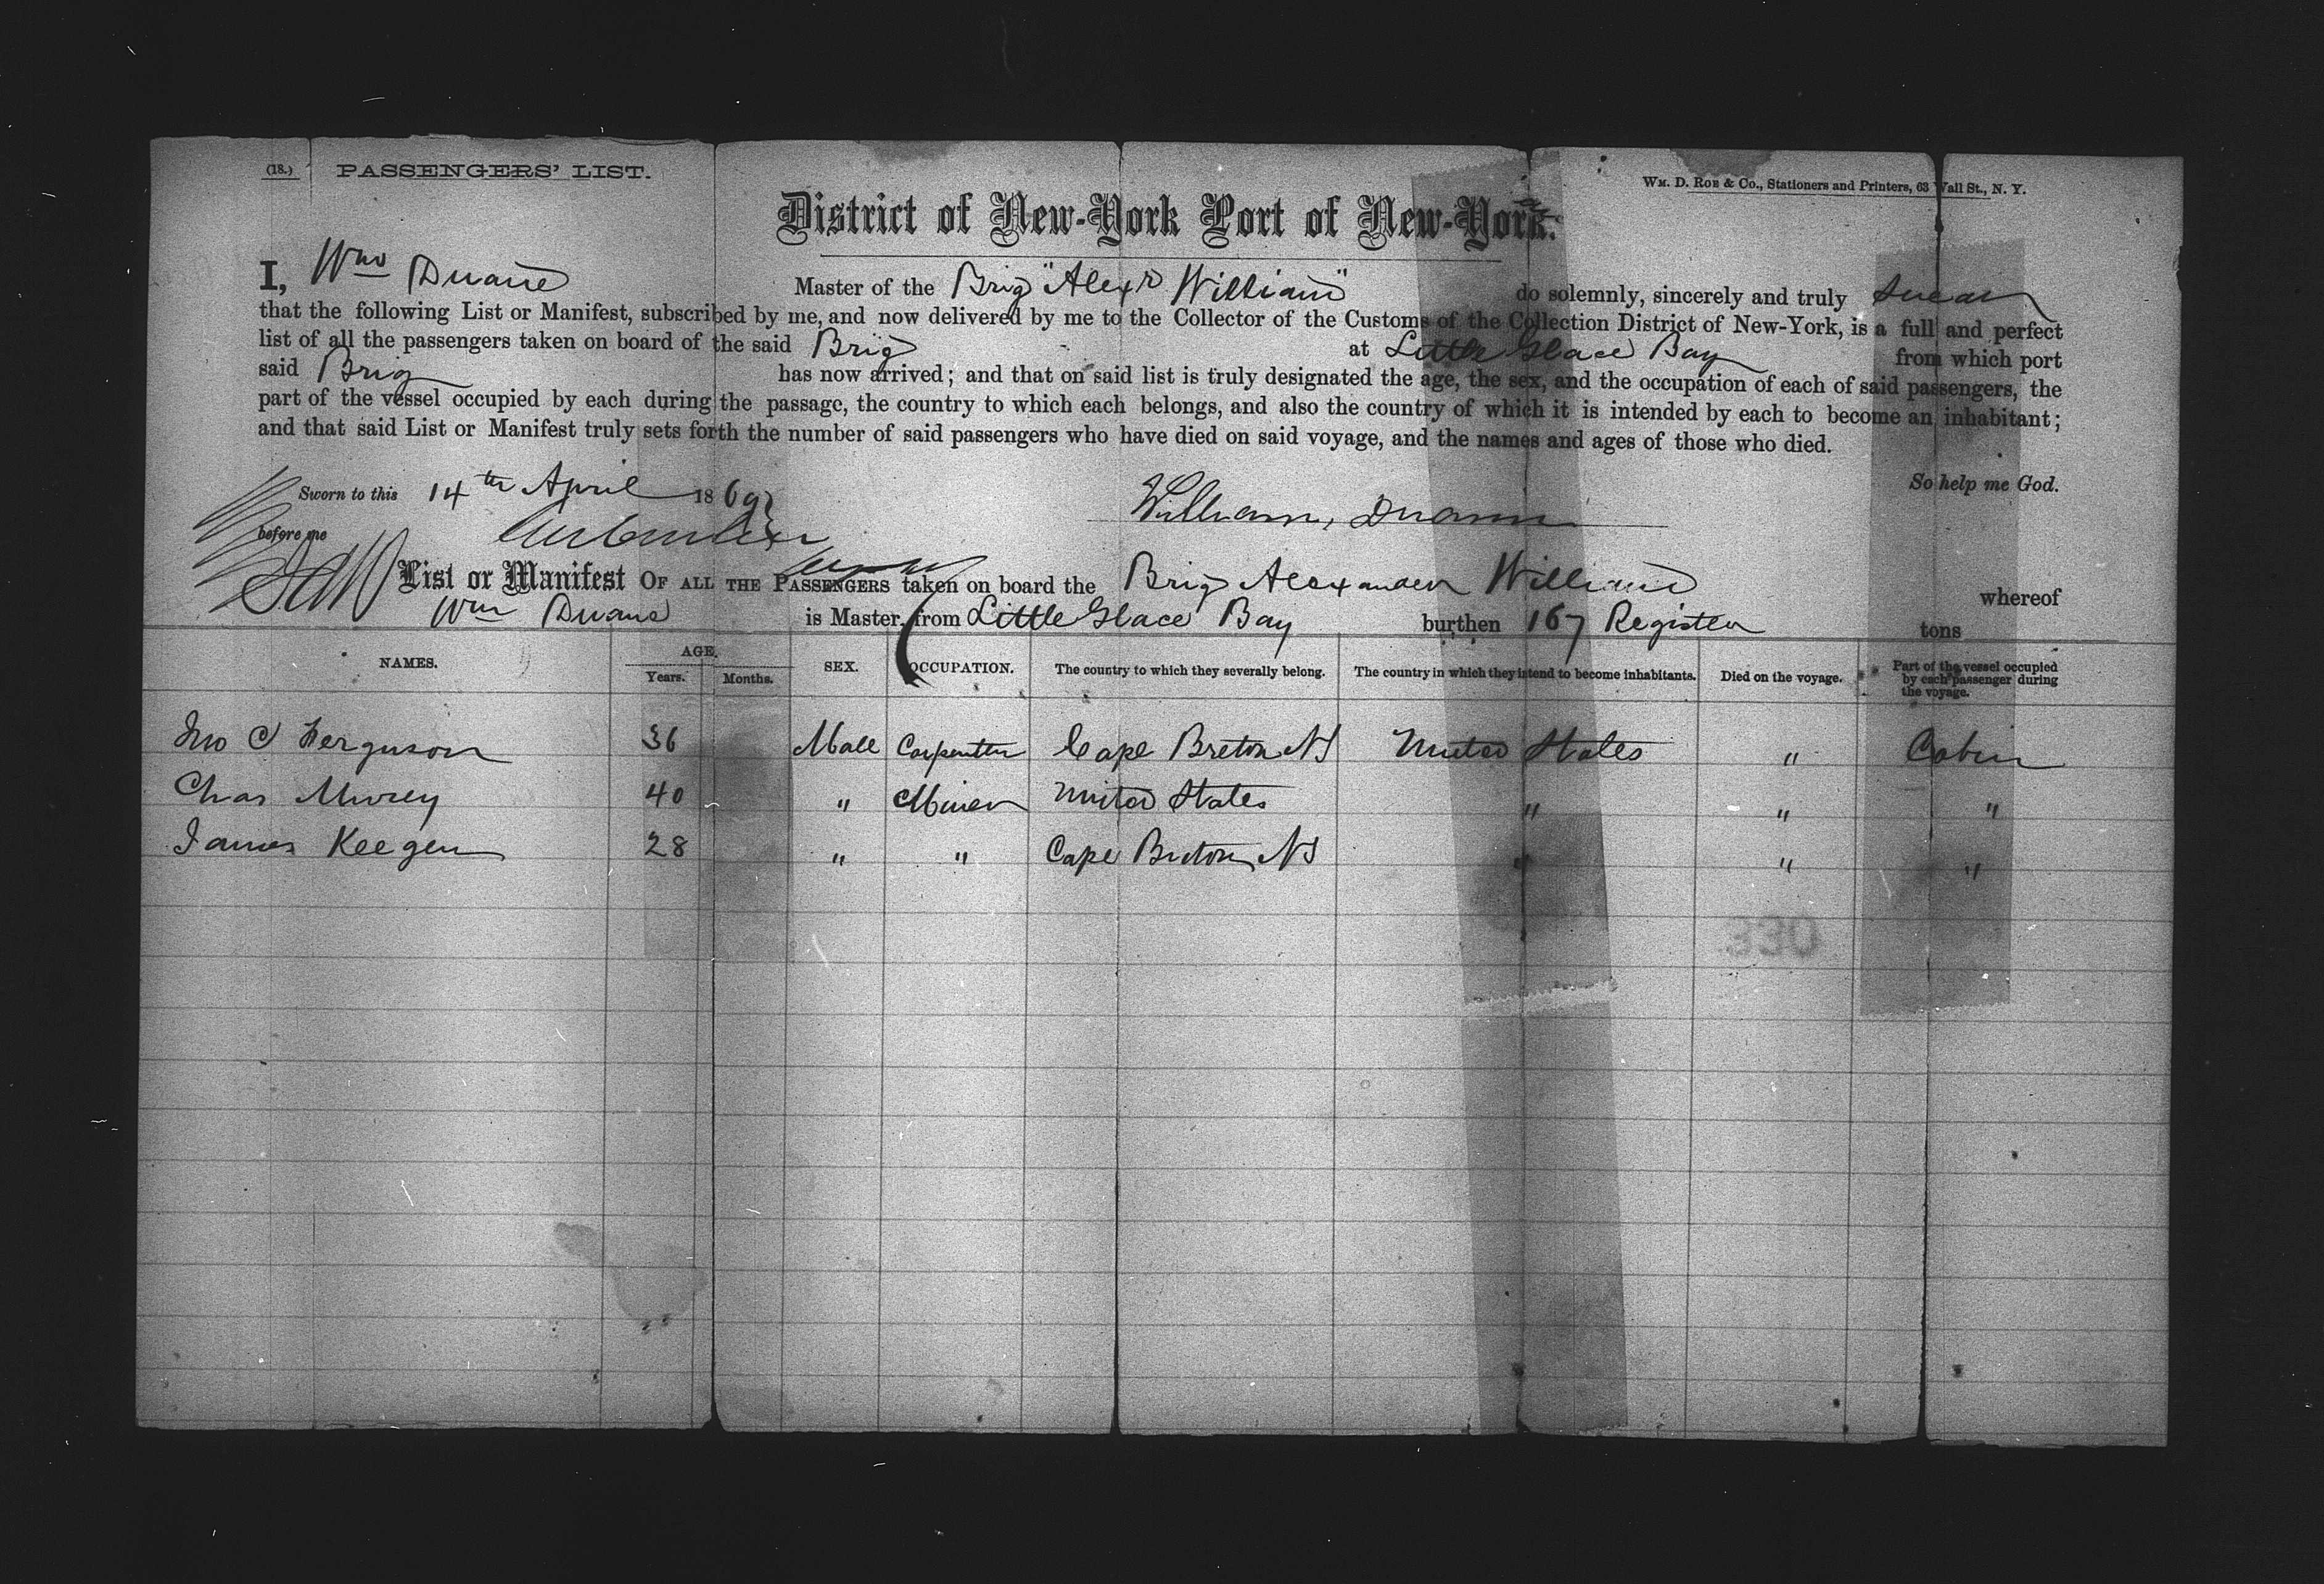 (18.) PASSENGERS' LIST.
WM. D. ROE & CO., Stationers and Printers, 63 Wall St., N. Y.
District of New-York Port of New-York.
I, Wm Duane Master of the Brig "Alexr William" do solemnly, sincerely and truly swear
that the following List or Manifest, subscribed by me, and now delivered by me to the Collector of the Customs of the Collection District of New-York, is a full and perfect
list of all the passengers taken on board of the said Brig at Little Glace Bay from which port
said Brig has now arrived; and that on said list is truly designated the age, the sex, and the occupation of each of said passengers, the
part of the vessel occupied by each during the passage, the country to which each belongs, and also the country of which it is intended by each to become an inhabitant;
and that said List or Manifest truly sets forth the number of said passengers who have died on said voyage, and the names and ages of those who died.
So help me God.
Sworn to this 14th April 1869
William, Duann
before me
List or Manifest OF ALL THE PASSENGERS taken on board the Brig Alexander William whereof
Wm Duane is Master, from Little Glace Bay burthen 167 Register tons
NAMES. AGE. Years. Months. SEX. OCCUPATION. The country to which they severally belong. The country in which they intend to become inhabitants. Died on the voyage. Part of the vessel occupied by each passenger during the voyage.
Jno C Ferguson 36 Male Carpenter Cape Breton NS United States " Cabin
Chas Mursey 40 " Miner United States " " "
James Keegen 28 " " Cape Breton NS " " "
330